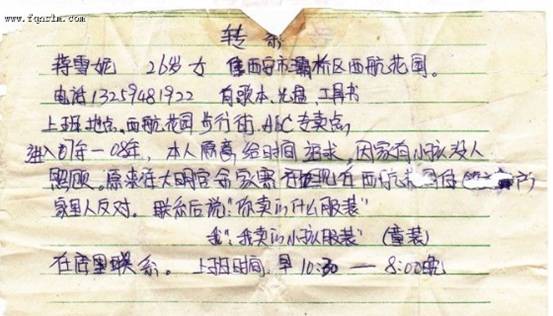 www.fqnslm.com
转
蒋雪妮 26岁 女 住西安市灞桥区西航花园。
电话13259481922 有歌本、光盘、工具书
上班地点、西航花园步行街、ABC专卖点,
进入07年—08年, 本人愿意给时间追求, 因家有小孩没人
照顾。原来在大明宫安家寨 现在西航花园住
家里人反对。联系后说:"你卖的什么服装"
我:"我卖的小孩服装" (童装)
在店里联系。 上班时间、早10:30 — 8:00晚